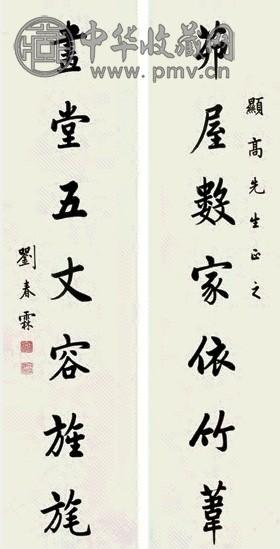 中华收藏网
www.pmv.cn
顯高先生正之
茆屋數家依竹葦
畫堂五丈容旌旄
劉春霖